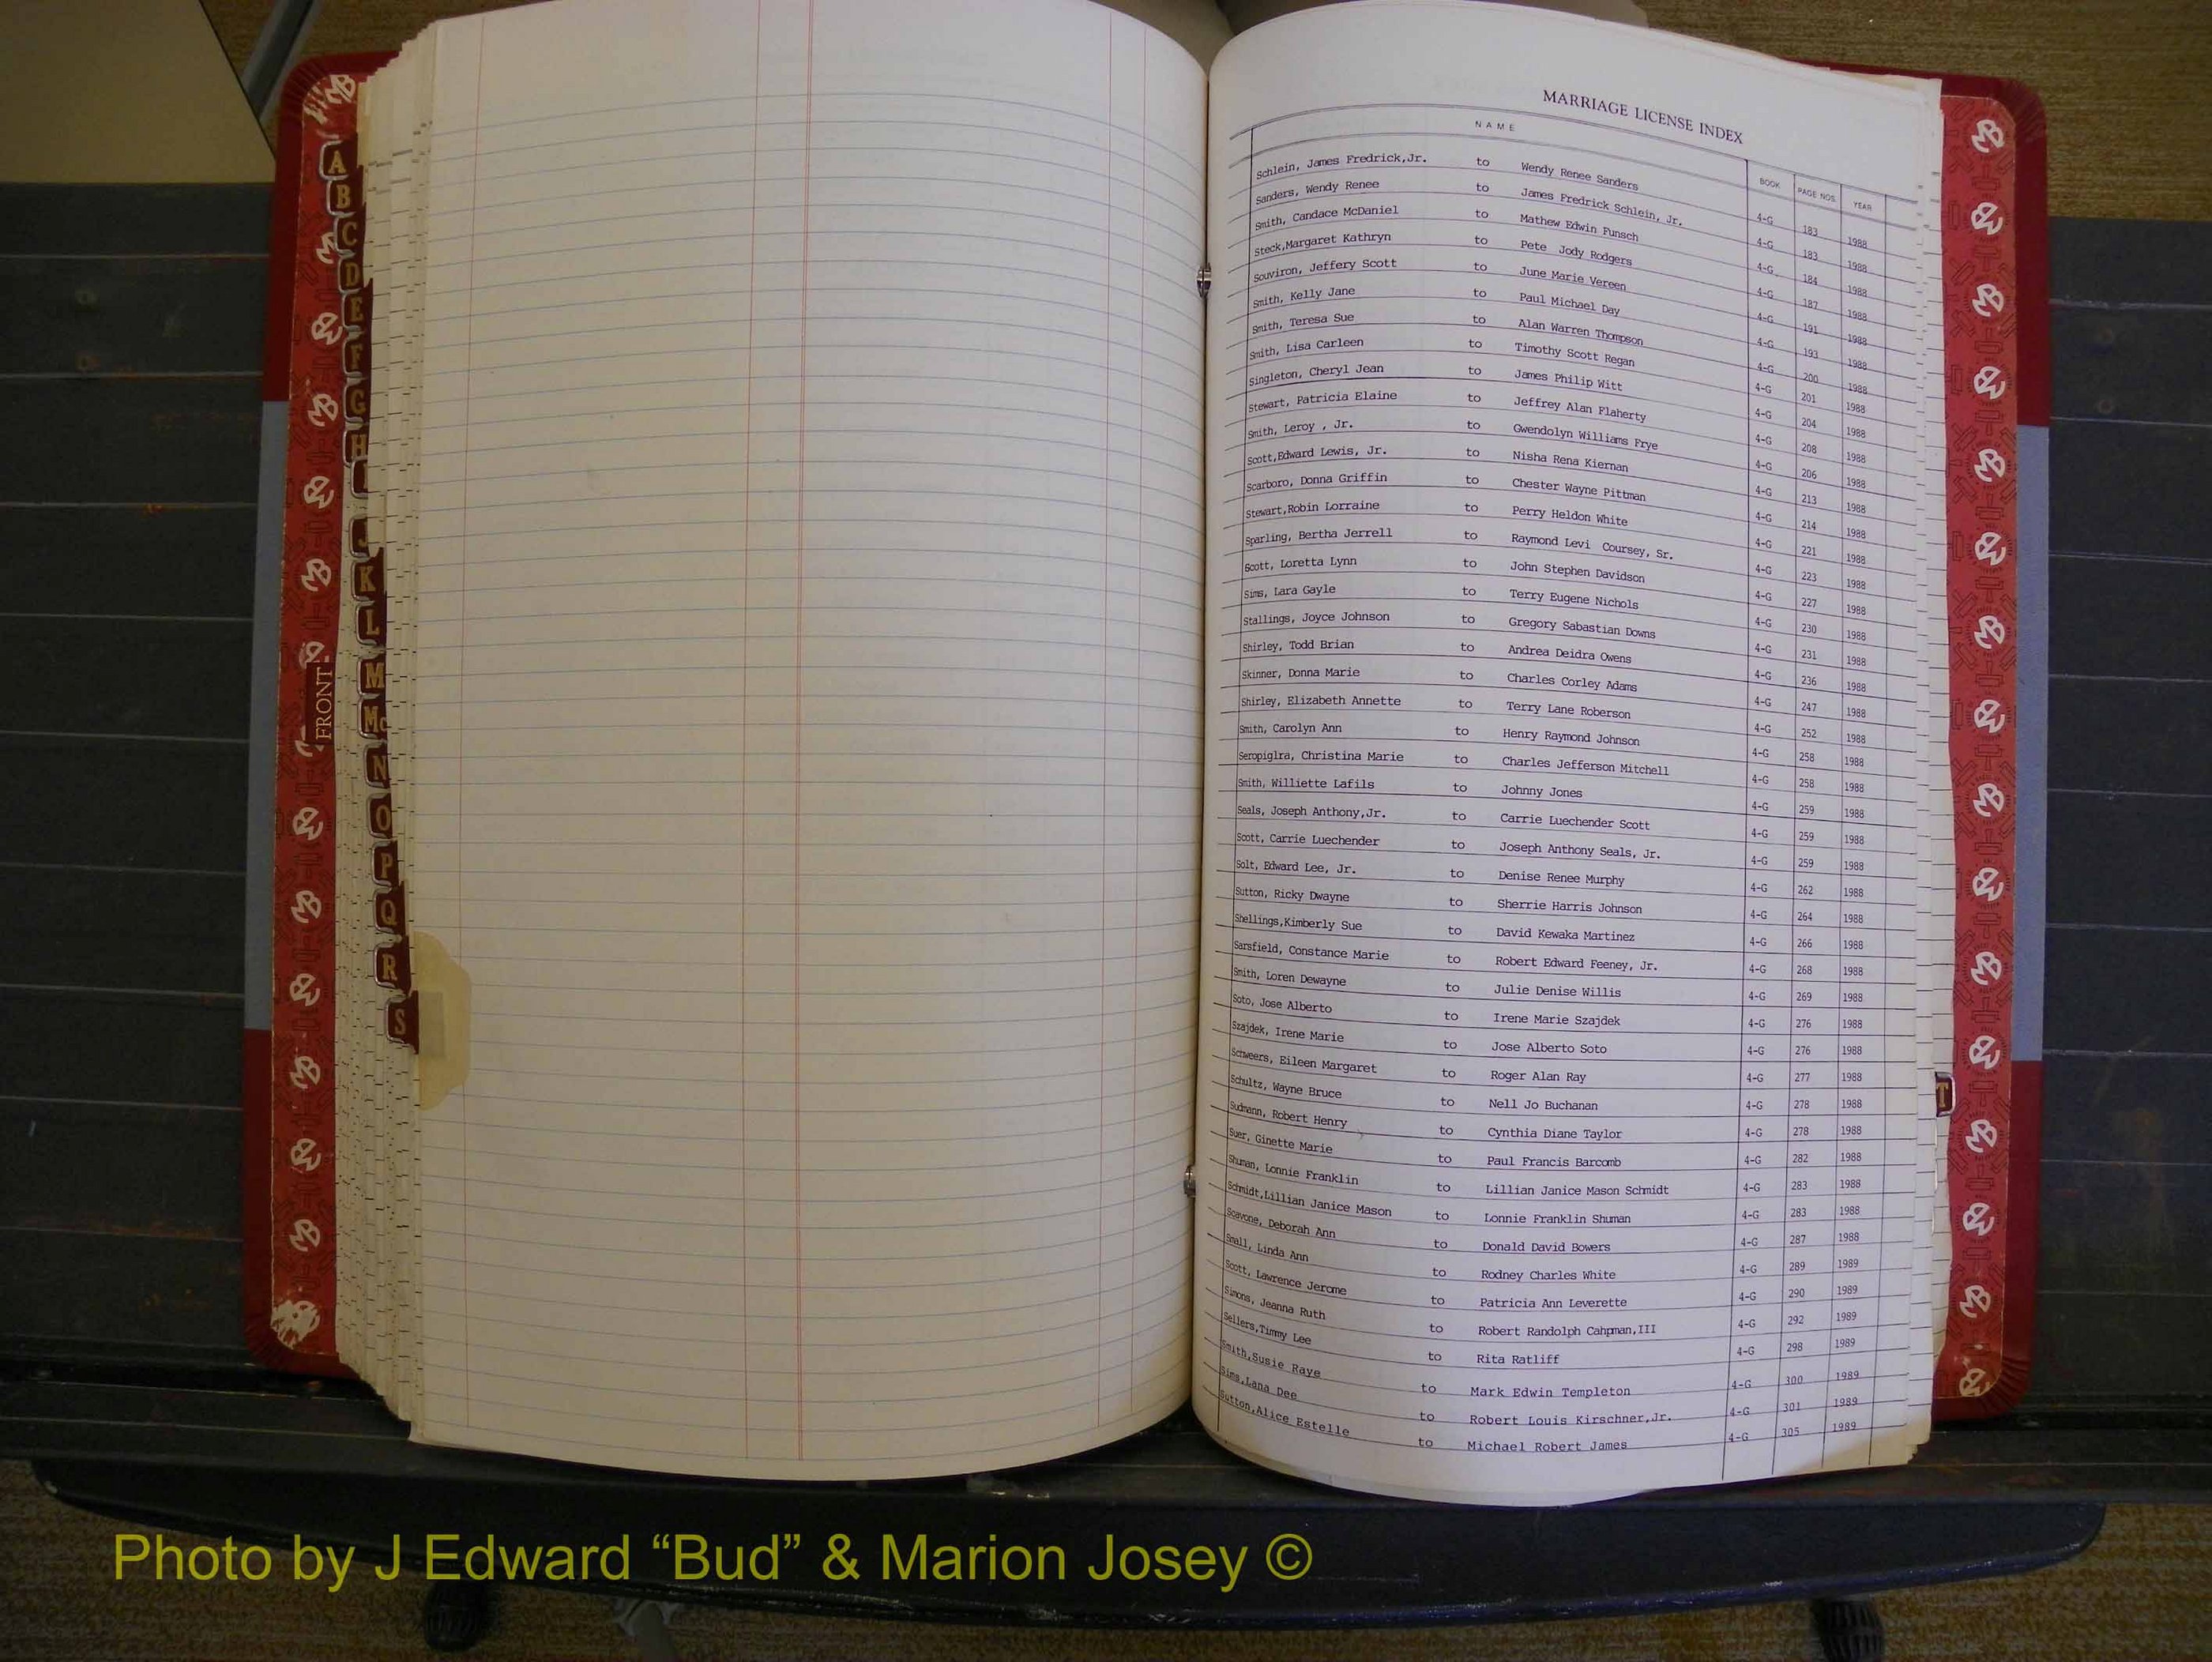 MARRIAGE LICENSE INDEX
NAME BOOK PAGE NOS. YEAR
Schlein, James Fredrick,Jr. to Wendy Renee Sanders 4-G 183 1988
Sanders, Wendy Renee to James Fredrick Schlein, Jr. 4-G 183 1988
Smith, Candace McDaniel to Mathew Edwin Funsch 4-G 184 1988
Steck,Margaret Kathryn to Pete Jody Rodgers 4-G 187 1988
Souviron, Jeffery Scott to June Marie Vereen 4-G 191 1988
Smith, Kelly Jane to Paul Michael Day 4-G 193 1988
Smith, Teresa Sue to Alan Warren Thompson 4-G 200 1988
Smith, Lisa Carleen to Timothy Scott Regan 4-G 201 1988
Singleton, Cheryl Jean to James Philip Witt 4-G 204 1988
Stewart, Patricia Elaine to Jeffrey Alan Flaherty 4-G 208 1988
Smith, Leroy , Jr. to Gwendolyn Williams Frye 4-G 206 1988
Scott,Edward Lewis, Jr. to Nisha Rena Kiernan 4-G 213 1988
Scarboro, Donna Griffin to Chester Wayne Pittman 4-G 214 1988
Stewart,Robin Lorraine to Perry Heldon White 4-G 221 1988
Sparling, Bertha Jerrell to Raymond Levi Coursey, Sr. 4-G 223 1988
Scott, Loretta Lynn to John Stephen Davidson 4-G 227 1988
Sims, Lara Gayle to Terry Eugene Nichols 4-G 230 1988
Stallings, Joyce Johnson to Gregory Sabastian Downs 4-G 231 1988
Shirley, Todd Brian to Andrea Deidra Owens 4-G 236 1988
Skinner, Donna Marie to Charles Corley Adams 4-G 247 1988
Shirley, Elizabeth Annette to Terry Lane Roberson 4-G 252 1988
Smith, Carolyn Ann to Henry Raymond Johnson 4-G 258 1988
Seropiglra, Christina Marie to Charles Jefferson Mitchell 4-G 258 1988
Smith, Williette Lafils to Johnny Jones 4-G 259 1988
Seals, Joseph Anthony,Jr. to Carrie Luechender Scott 4-G 259 1988
Scott, Carrie Luechender to Joseph Anthony Seals, Jr. 4-G 259 1988
Solt, Edward Lee, Jr. to Denise Renee Murphy 4-G 262 1988
Sutton, Ricky Dwayne to Sherrie Harris Johnson 4-G 264 1988
Shellings,Kimberly Sue to David Kewaka Martinez 4-G 266 1988
Sarsfield, Constance Marie to Robert Edward Feeney, Jr. 4-G 268 1988
Smith, Loren Dewayne to Julie Denise Willis 4-G 269 1988
Soto, Jose Alberto to Irene Marie Szajdek 4-G 276 1988
Szajdek, Irene Marie to Jose Alberto Soto 4-G 276 1988
Schweers, Eileen Margaret to Roger Alan Ray 4-G 277 1988
Schultz, Wayne Bruce to Nell Jo Buchanan 4-G 278 1988
Sudmann, Robert Henry to Cynthia Diane Taylor 4-G 278 1988
Suer, Ginette Marie to Paul Francis Barcomb 4-G 282 1988
Shuman, Lonnie Franklin to Lillian Janice Mason Schmidt 4-G 283 1988
Schmidt,Lillian Janice Mason to Lonnie Franklin Shuman 4-G 283 1988
Scavone, Deborah Ann to Donald David Bowers 4-G 287 1988
Small, Linda Ann to Rodney Charles White 4-G 289 1989
Scott, Lawrence Jerome to Patricia Ann Leverette 4-G 290 1989
Simons, Jeanna Ruth to Robert Randolph Cahpman,III 4-G 292 1989
Sellers,Timmy Lee to Rita Ratliff 4-G 298 1989
Smith,Susie Raye to Mark Edwin Templeton 4-G 300 1989
Sims,Lana Dee to Robert Louis Kirschner,Jr. 4-G 301 1989
Sutton,Alice Estelle to Michael Robert James 4-G 305 1989
A
B
C
D
E
F
G
H
I
J
K
L
M
Mc
N
O
P
Q
R
S
T
FRONT
Photo by J Edward “Bud” & Marion Josey ©